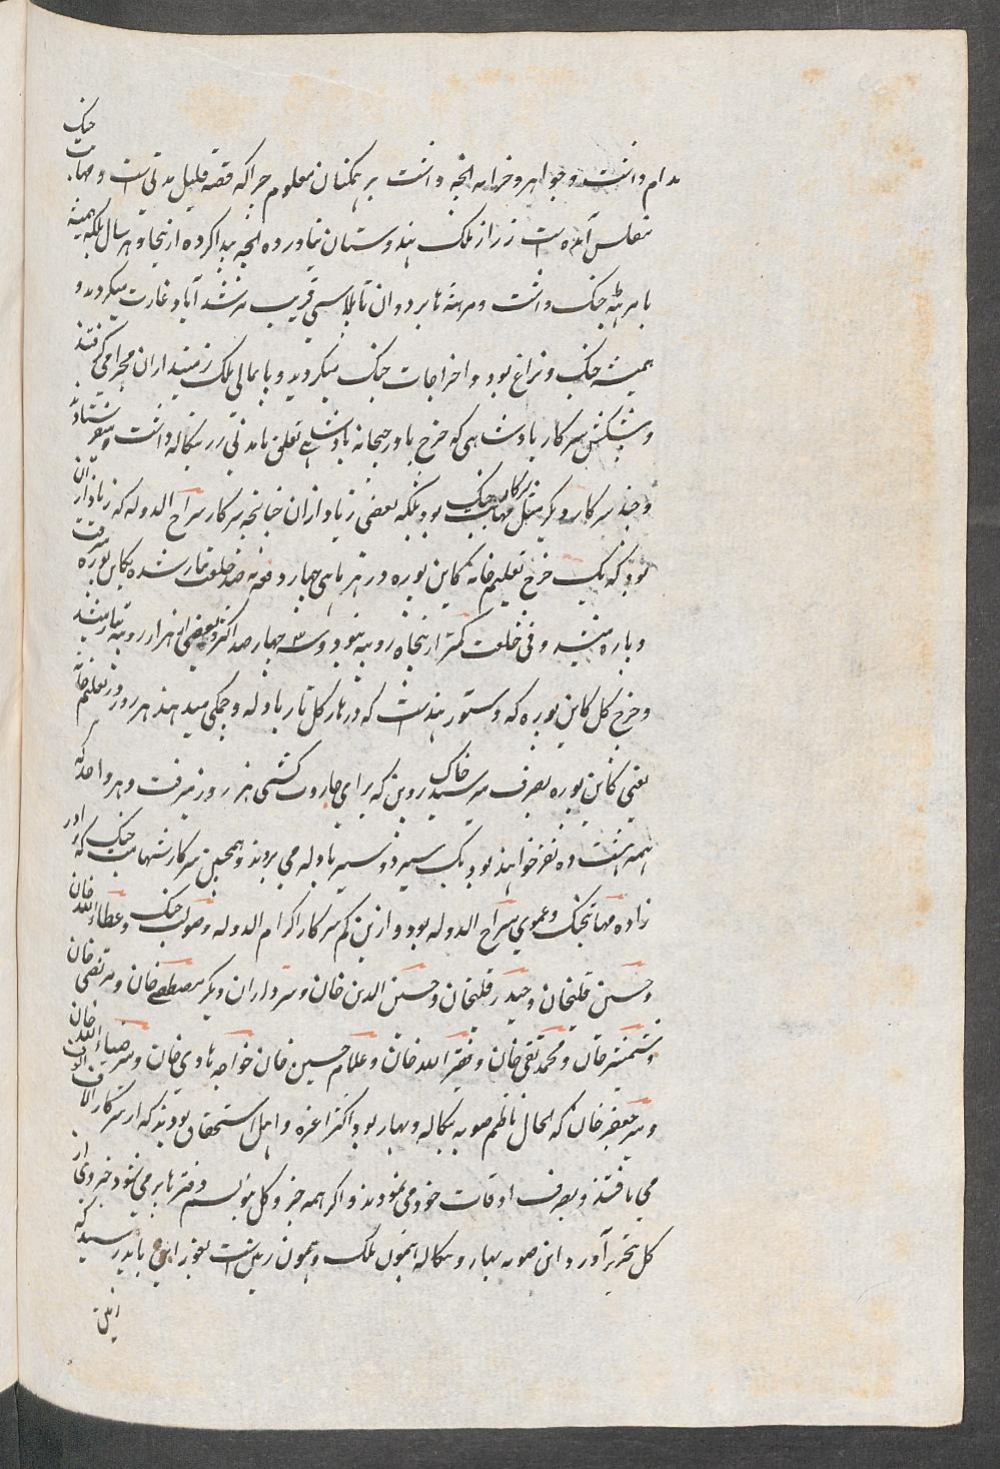 مدام داشت و جواهر و خزانه آنچه داشت بر همکنان معلوم چرا که قصه قلیل مدتی است و مهابت جنک
مفلس آمده است زر از ملک هندوستان نیاورده آنچه پیدا کرده از ینجا و هر سال بلکه همیشه
با مرهٹه جنک داشت و مرهٹه تا بردوان تا پلاسی قریب مرشد آباد غارت میکردند و
همیشه جنک و نزاع بود و اخراجات جنک میکردید و پایمالی ملک زمینداران مجرا می کرفتند
و پیشکش سرکار پادشاهی که خرج باورچیخانه پادشاهی تعلق بامدنی زر بنکاله داشت
و چند سرکار دیکر مثل سرکار مهابت جنک بود بلکه بعضی زیاد ازان چنانچه سرکار سراج الدوله که زیاد ازان
بود که یک خرج تعلیم خانه کاین پوره در هر ماهی چهار دفعه صد خلعت تیار شده بکاین پوره میرفت
و پاره میشد و فی خلعت کمتر از پنجاه روپیه نبود و سه چهار صد اکثر و بعضی از هزار روپیه تیار میشد
و خرج کل کاین پوره که دستور هند است که در هار کل تار بادله و چمکی میدهند هر روز در تعلیم خانه
یعنی کاین پوره بصرف میرسید خاک روبن که برای جاروب کشی هر روز میرفت و هر واحد که
همه هشت ده نفر خواهند بود یک سیر دو سیر بادله می بردند و همچنین سرکار شهامت جنک که برادر
زاده مهابتجنک و عموی سراج الدوله بود و ازین کم سرکار اکرام الدوله و صولت جنک و عطاء الله خان
و حسین قلیخان و حیدر قلیخان و حسین الدین خان و سرداران دیکر مصطفی خان و مرتضی خان
و شمشیر خان و محمد تقی خان و فقیر الله خان و غلام حسین خان خواجه هادی خان و میر ضیاء الله خان
و میر جعفر خان که الحال ناظم صوبه بنکاله و بهار بود اکثر اعزه و اهل استحقاق بودند که از سرکار الاف الوف
می یافتند و بصرف اوقات خود می نمودند و اکر همه جز و کل بنویسم دفترها پر می شود جزوی از
کل بتحریر آورد این صوبه بهار و بنکاله همون ملک و همون زمین است بغور این باید رسید که